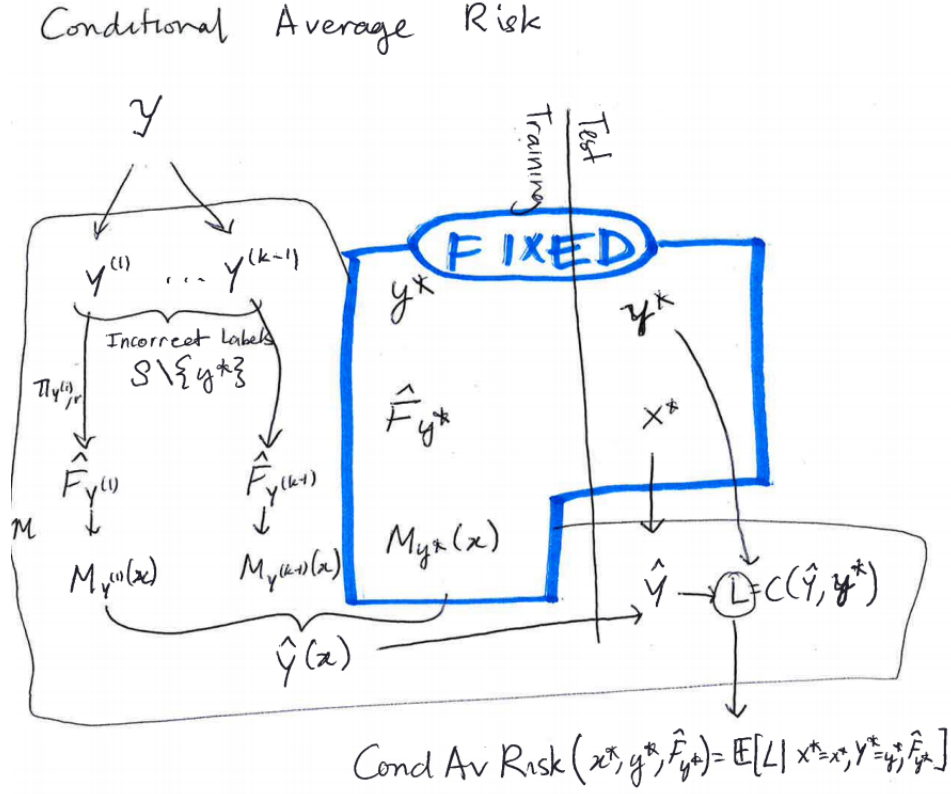 Conditional Average Risk
𝒴
Training
Test
FIXED
Y⁽¹⁾ ... Y⁽ᵏ⁻¹⁾
y*
y*
Incorrect Labels
S\{y*}
π_{Y⁽ⁱ⁾,r}
F̂_{y*}
X*
F̂_{Y⁽¹⁾}
F̂_{Y⁽ᵏ⁻¹⁾}
M
M_{Y⁽¹⁾}(x)
M_{Y⁽ᵏ⁻¹⁾}(x)
M_{y*}(x)
Ŷ
L = C(Ŷ, y*)
Ŷ(x)
Cond Av Risk (x*, y*, F̂_{y*}) = 𝔼[L| X*=x*, Y*=y*, F̂_{y*}]